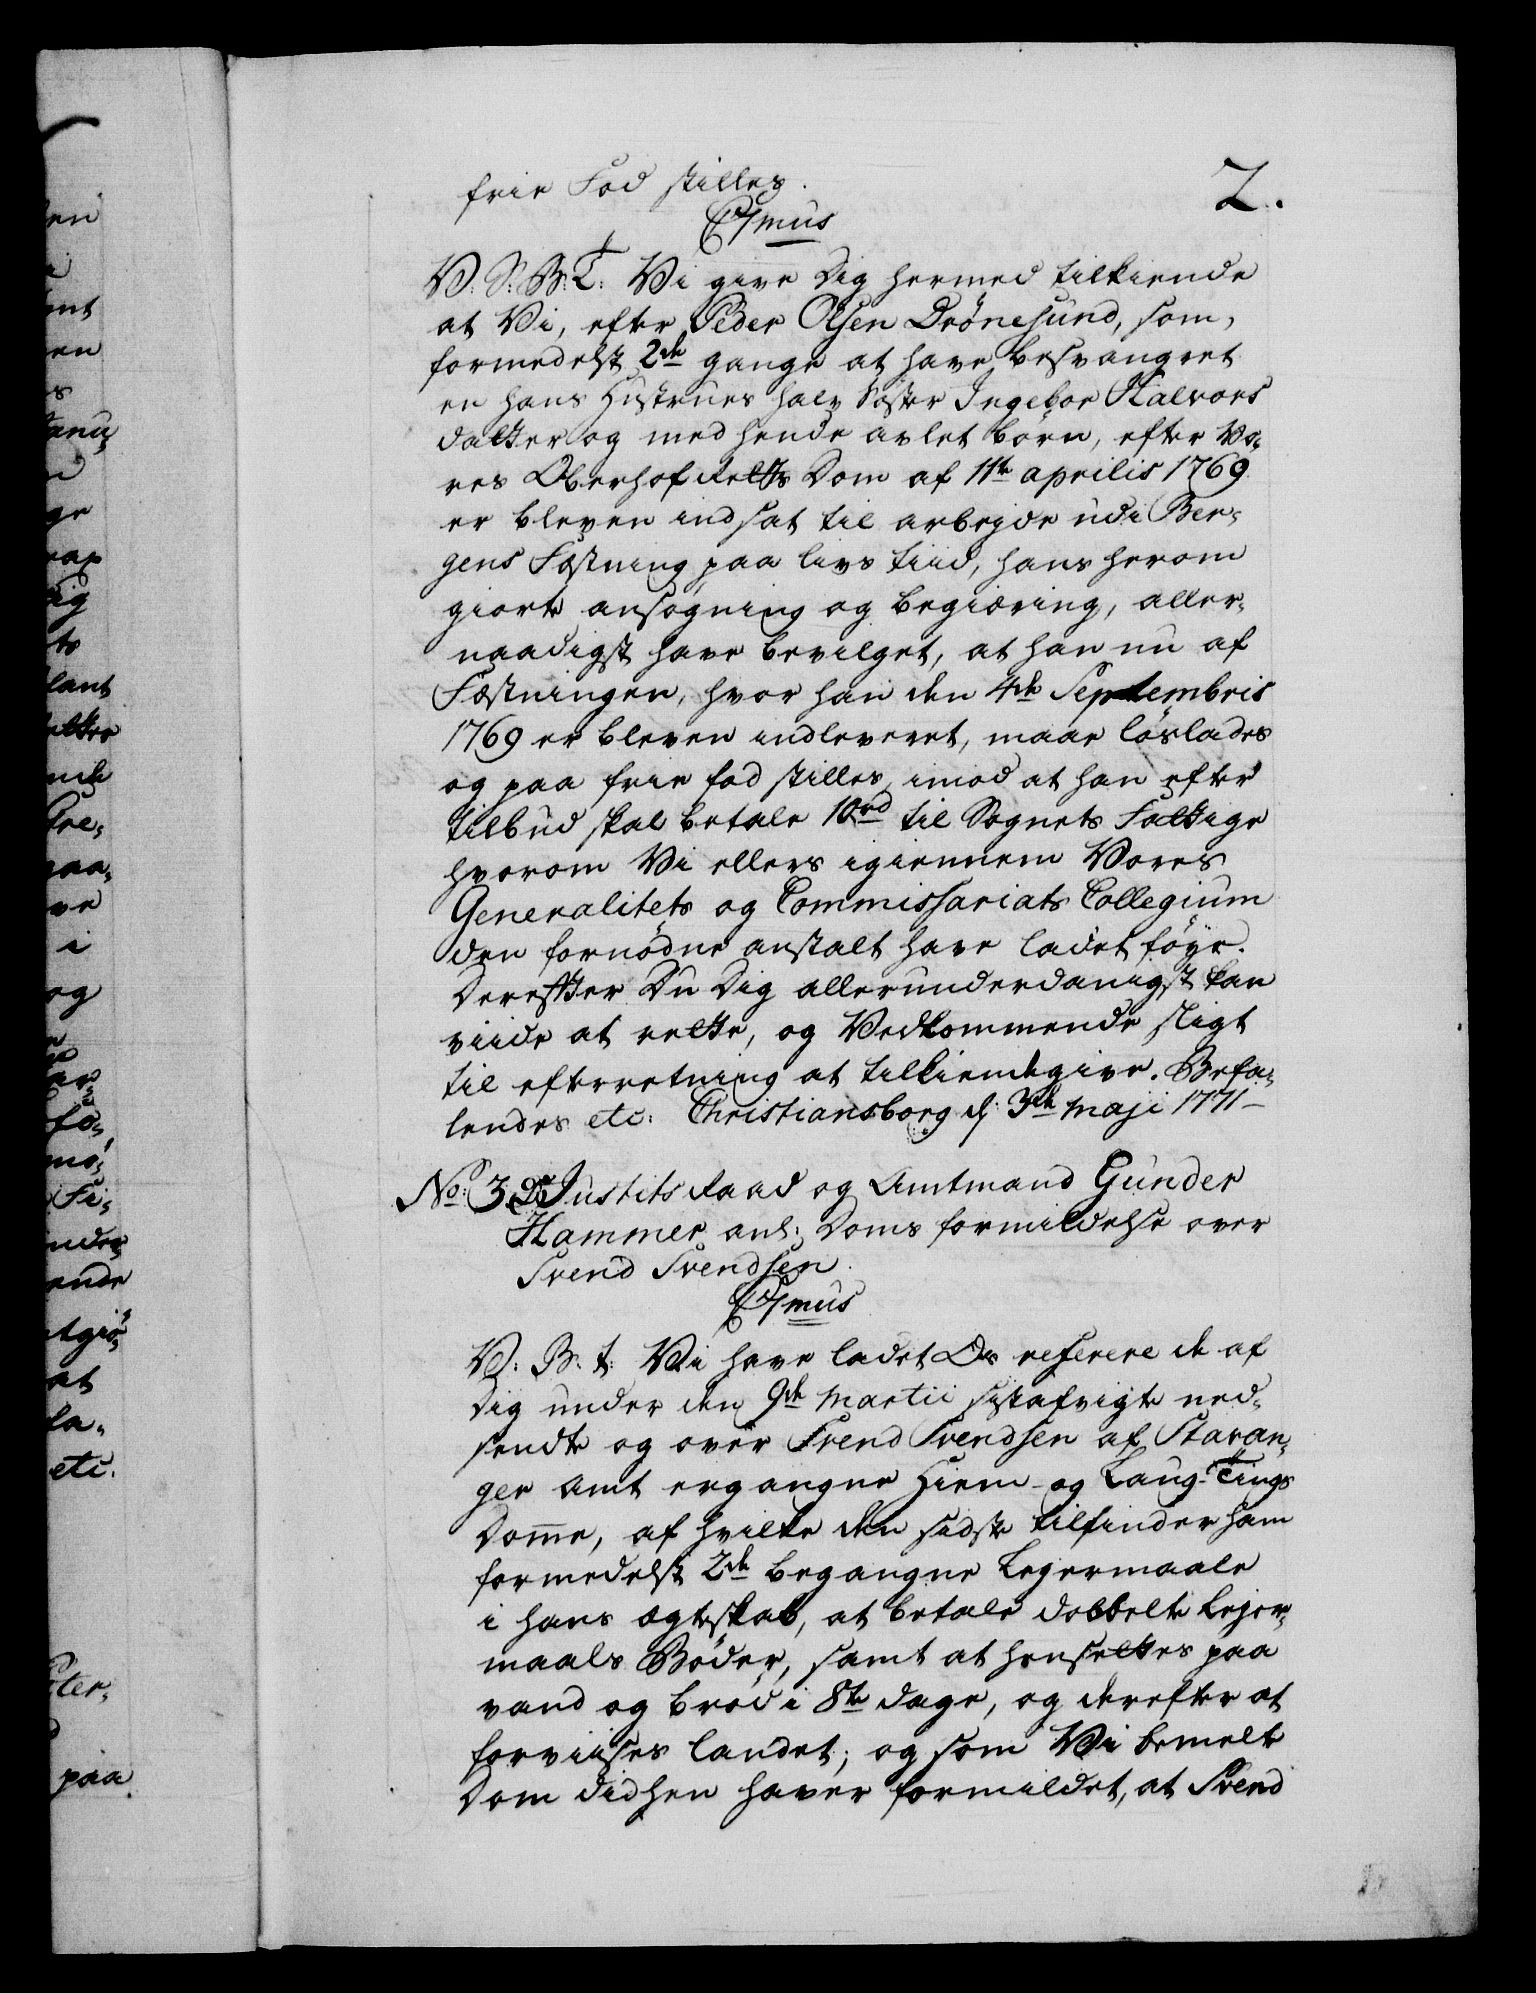 2.
frie Fod stilles.
C7mus
V: S: B: T: Vi give Dig hermed tilkiende
at Vi, efter Peder Olsen Drönesund, som,
formedelst 2de gange at have besvangret
en hans Hustrues halv Söster Ingebor Halvors
datter og med hende avlet börn, efter Vo-
res Oberhof Retts Dom af 11te aprilis 1769
er bleven indsat til arbejde udi Ber-
gens Fæstning paa livs tiid, hans herom
giorte ansögning og begiæring, aller-
naadigst have bevilget, at han nu af
Fæstningen, hvor han den 4de Septembris
1769 er bleven indleveret, maae löslades
og paa frie fod stilles, imod at han efter
tilbud skal betale 10rd til Sognets Fattige
hvorom Vi ellers igiennem Vores
Generalitets og Commissariats Collegium
den fornödne anstalt have ladet föye.
Derefter Du Dig allerunderdanigst kan
viide at rette, og Vedkommende sligt
til efterretning at tilkiendegive. Befa-
lendes etc: Christiansborg d: 3de Maji 1771
No: 3. Justits Raad og Amtmand Gunder
Hammer anl: Doms formildelse over
Svend Svendsen.
C7mus
V: B: t: Vi have ladet Os referere de af
Dig under den 9de Martii sistafvigte ned-
sendte og over Svend Svendsen af Stavan-
ger Amt ergangne Hiem- og Laug-Tings
Domme, af hvilke den sidste tilfinder ham
formedelst 2de begangne Lejermaale
i hans ægteskab, at betale dobbelte Lejer-
maals Böder, samt at hensettes paa
vand og bröd i 8te dage, og derefter at
forviises landet; og som Vi bemelte
Dom didhen haver formildet, at Svend